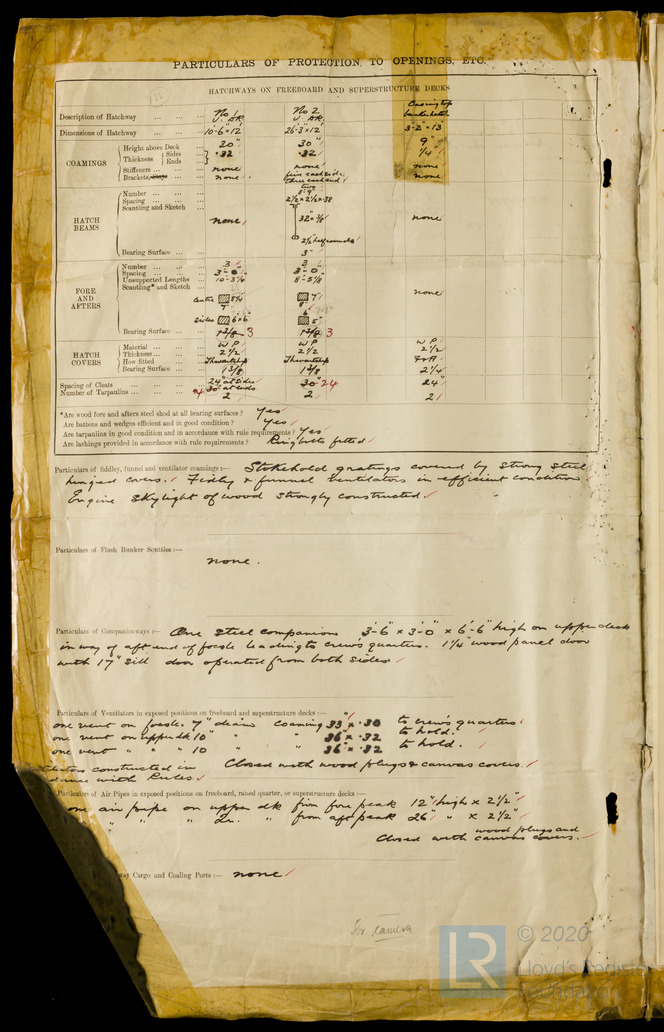 PARTICULARS OF PROTECTION TO OPENINGS, ETC.
HATCHWAYS ON FREEBOARD AND SUPERSTRUCTURE DECKS
Description of Hatchway ... No 1 U. DK. No 2 U. DK. Casing top bunker hatch
Dimensions of Hatchway ... 10'-6" × 12' 26'-3" × 12' 3'-2" × 13'
COAMINGS
Height above Deck ... 30" 30" 9"
Thickness Sides Ends .32 .32 1/4"
Stiffeners ... none none none
Brackets, ... none five each side three each end none
HATCH BEAMS
Number ... two
Spacing ... 8'-9"
Scantling and Sketch ... 2½ × 2½ × .38
none 32" × 3/8" none
2½ half rounds
Bearing Surface ... 3"
FORE AND AFTERS
Number ... 3 3
Spacing ... 3'-0" 3'-0"
Unsupported Lengths 10'-3¼ 8'-5⅝
Scantling* and Sketch ...
none
Centre 5¼ 7"
7" 8"
Sides 6" × 6" 6"
5"
Bearing Surface ... 1⅜ 3 1⅜ 3
HATCH COVERS
Material ... W P W P W P
Thickness ... 2½ 2½ 2½
How fitted ... Thwartship Thwartship F & A
Bearing Surface ... 1⅜ 1⅜ 2¼
Spacing of Cleats ... 24" at sides 30" at ends 30" 24 24"
Number of Tarpaulins ... 2 2 2
*Are wood fore and afters steel shod at all bearing surfaces? Yes
Are battens and wedges efficient and in good condition? Yes
Are tarpaulins in good condition and in accordance with rule requirements? Yes
Are lashings provided in accordance with rule requirements? Ringbolts fitted
Particulars of fiddley, funnel and ventilator coamings:— Stokehold gratings covered by strong steel
hinged covers. Fidley & funnel ventilators in efficient condition
Engine skylight of wood strongly constructed.
Particulars of Flush Bunker Scuttles:—
none.
Particulars of Companionways:— One steel companion 3'-6" × 3'-0" × 6'-6" high on upper deck
in way of aft end of focsle leading to crew's quarters. 1¼" wood panel door
with 17" sill door operated from both sides
Particulars of Ventilators in exposed positions on freeboard and superstructure decks:—
one vent on focsle. 7" diam coaming 33" × .30 to crew's quarters.
one vent on upp dk 10" " " 36" × .32 to hold.
one vent " " " 10 " " 36" × .32 to hold.
constructed in Closed with wood plugs & canvas covers.
with Rules
Particulars of Air Pipes in exposed positions on freeboard, raised quarter, or superstructure decks:—
one air pipe on upper dk from fore peak 12" high × 2½"
" " " " from aft peak 26" " × 2½"
wood plugs and
Closed with canvas covers.
way Cargo and Coaling Ports:— none
for camera
LR © 2020
Lloyd's Register
Foundation